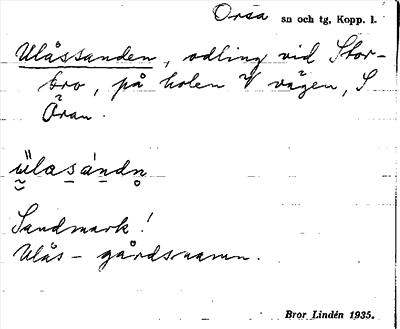 Orsa sn och tg, Kopp. l.
Ulåssanden, odling vid Stor-
bro, på holen V vägen, S
Öran.
ü̬lasándn̥
Sandmark!
Ulås - gårdsnamn.
Bror Lindén 1935.